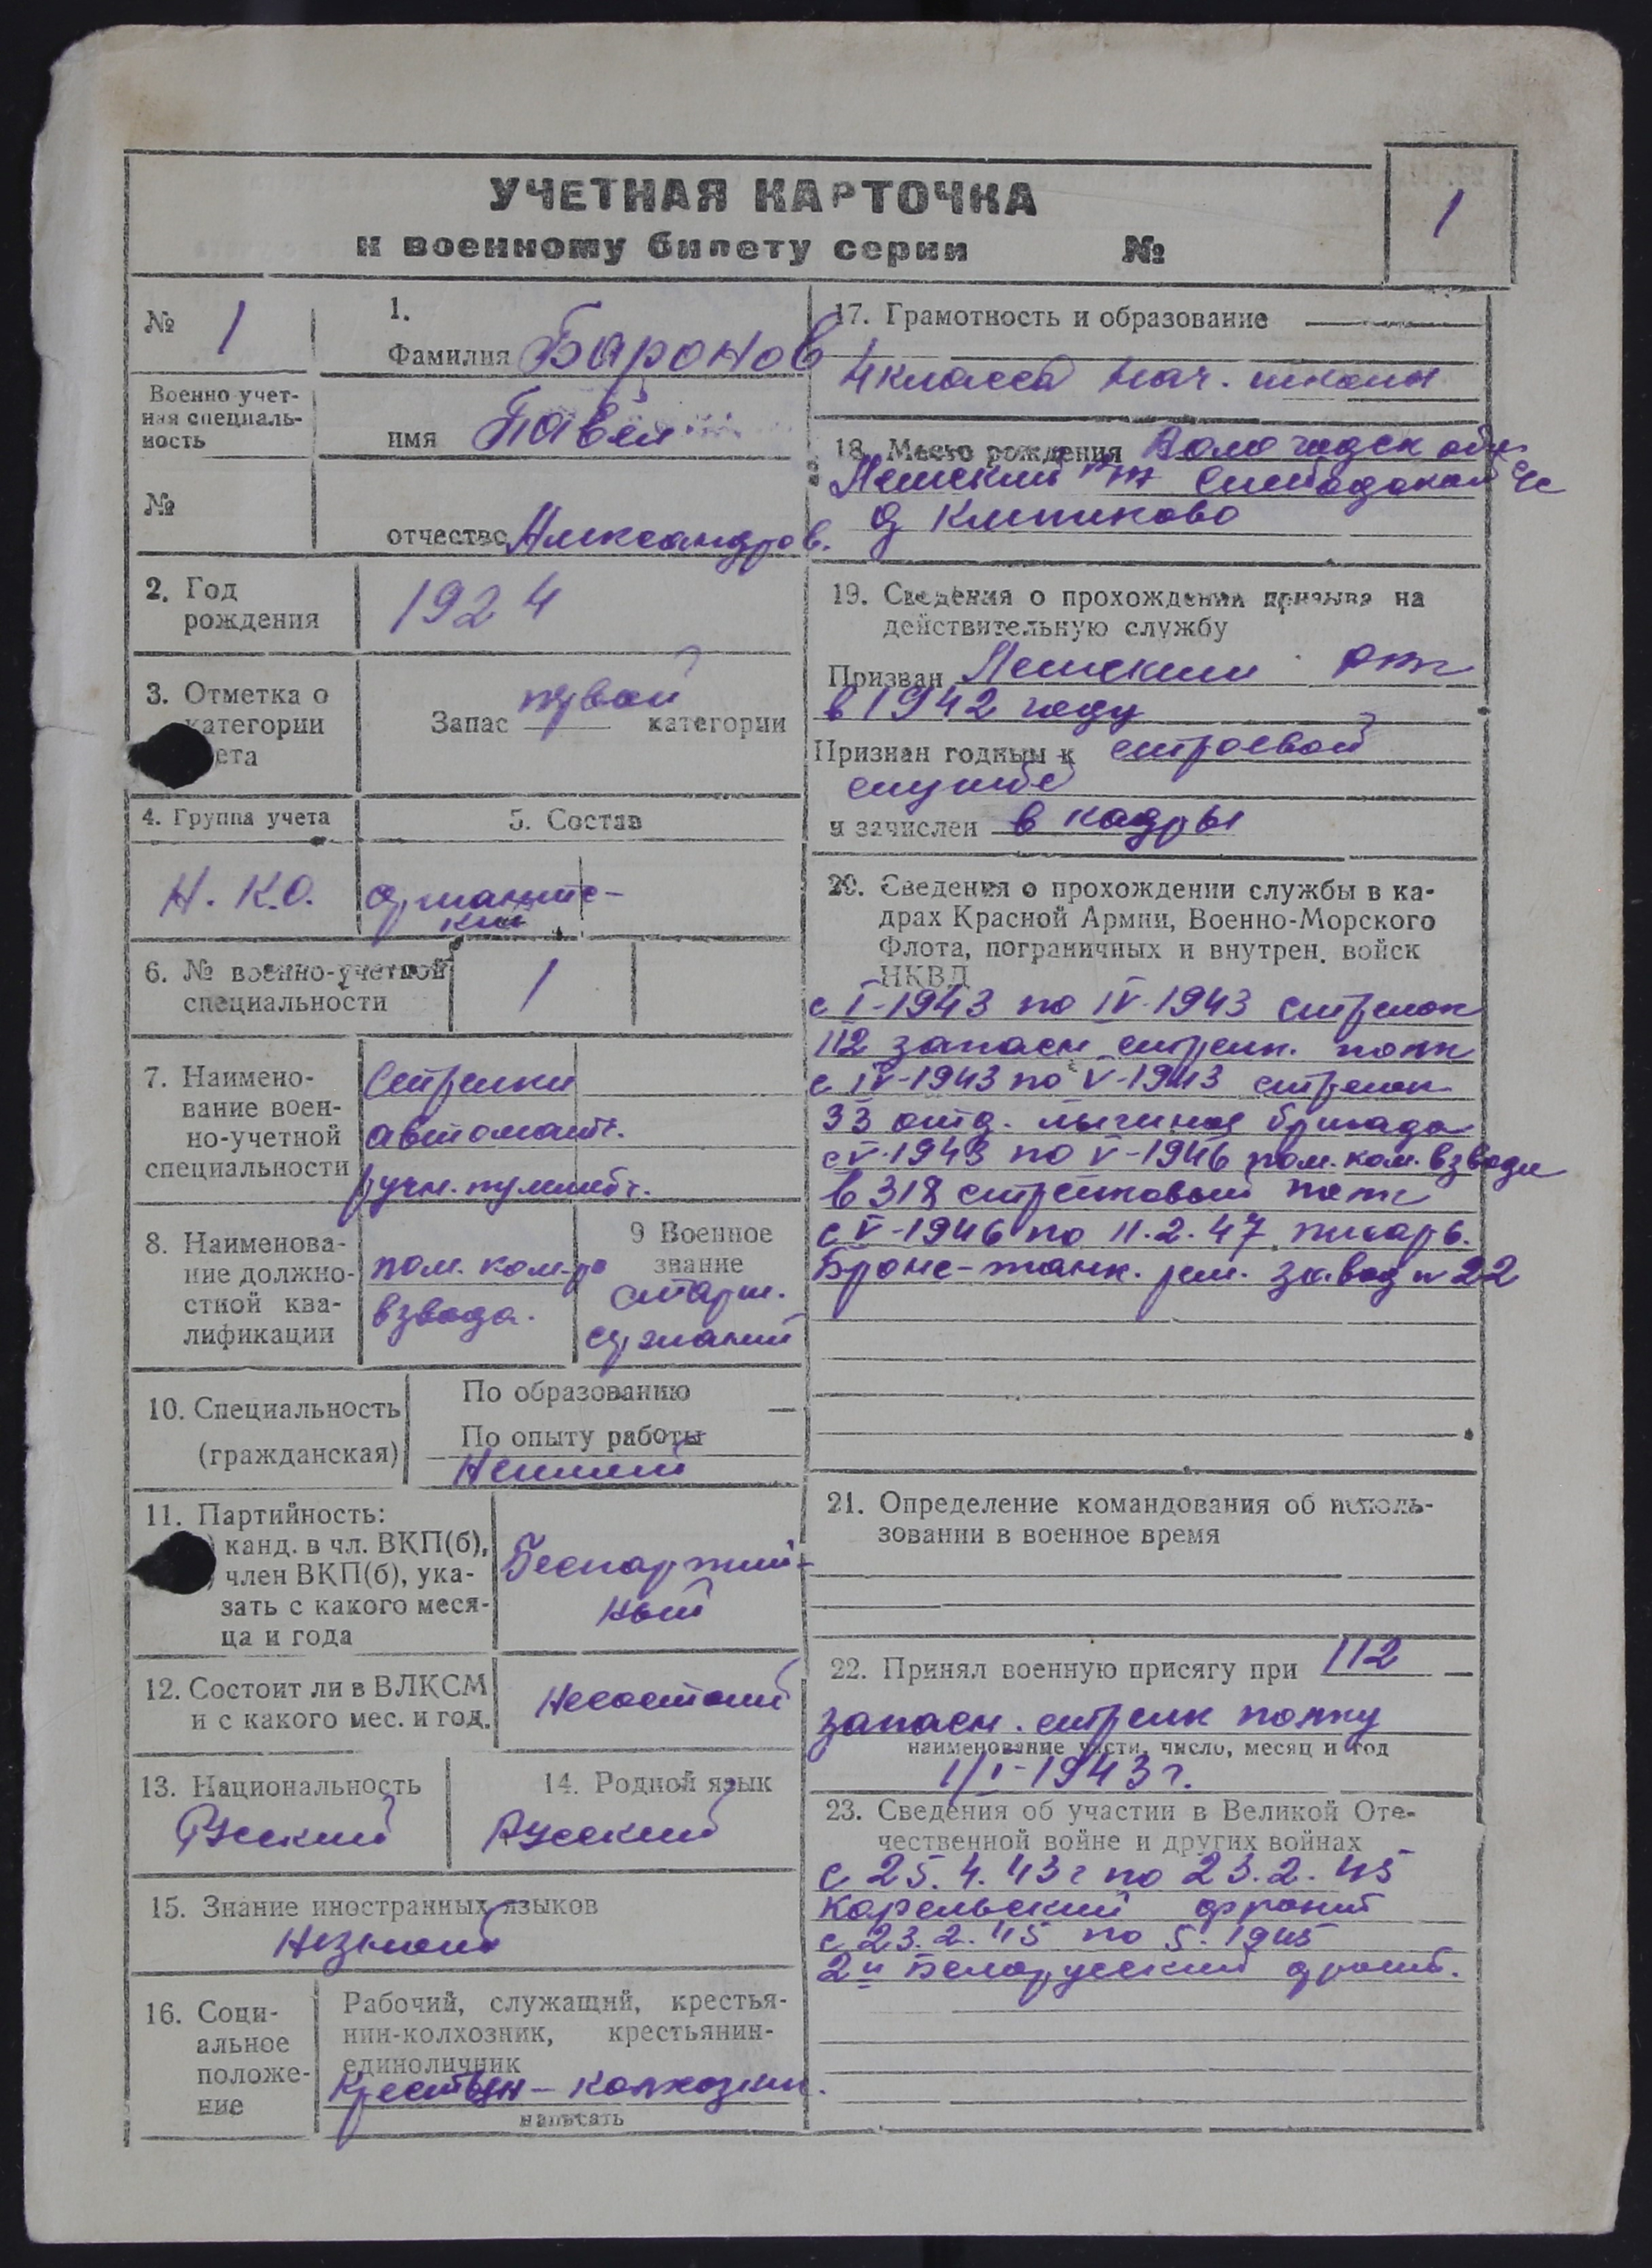 УЧЕТНАЯ КАРТОЧКА
к военному билету серии №
1
№ 1
1.
Фамилия Баронов
Военно-учет-
ная специаль-
ность
имя Павел
№
отчество Александров.
2. Год
рождения
1924
3. Отметка о
категории
ета
Запас первой категории
4. Группа учета
5. Состав
Н.К.О.
сержантс-
кий
6. № военно-учетной
специальности
1
7. Наимено-
вание воен-
но-учетной
специальности
Стрелки
автоматч.
ручн. пулеметч.
8. Наименова-
ние должно-
стной ква-
лификации
пом. ком-ра
взвода.
9 Военное
звание
старш.
сержант
10. Специальность
(гражданская)
По образованию —
По опыту работы
Неимеет
11. Партийность:
канд. в чл. ВКП(б),
член ВКП(б), ука-
зать с какого меся-
ца и года
Беспартий-
ный
12. Состоит ли в ВЛКСМ
и с какого мес. и год.
Несостоит
13. Национальность
Русский
14. Родной язык
Русский
15. Знание иностранных языков
Незнает
16. Соци-
альное
положе-
ние
Рабочий, служащий, крестья-
нин-колхозник, крестьянин-
единоличник
Крестьян-колхозник.
написать
17. Грамотность и образование
4 класса нач. школы
18. Место рождения Вологодск обл
с/с
д
19. Сведения о прохождении призыва на
действительную службу
Призван
в 1942 году
Признан годным к строевой
службе
и зачислен в кадры
20. Сведения о прохождении службы в ка-
драх Красной Армии, Военно-Морского
Флота, пограничных и внутрен. войск
НКВД
с I-1943 по IV-1943 стрелок
112 запасн стрелк. полк
с IV-1943 по V-1943 стрелок
33 отд. лыжная бригада
с V-1943 по V-1946 пом. ком. взвода
в 318 стрелковый полк
с V-1946 по 11.2.47 писарь.
Броне-танк. рем. завод № 22
21. Определение командования об исполь-
зовании в военное время
22. Принял военную присягу при 112
запасн. стрелк полку
наименование части, число, месяц и год
1/I-1943 г.
23. Сведения об участии в Великой Оте-
чественной войне и других войнах
с 25.4.43 г по 23.2.45
Карельский фронт
с 23.2.45 по 5.1945
2й Белорусский фронт.